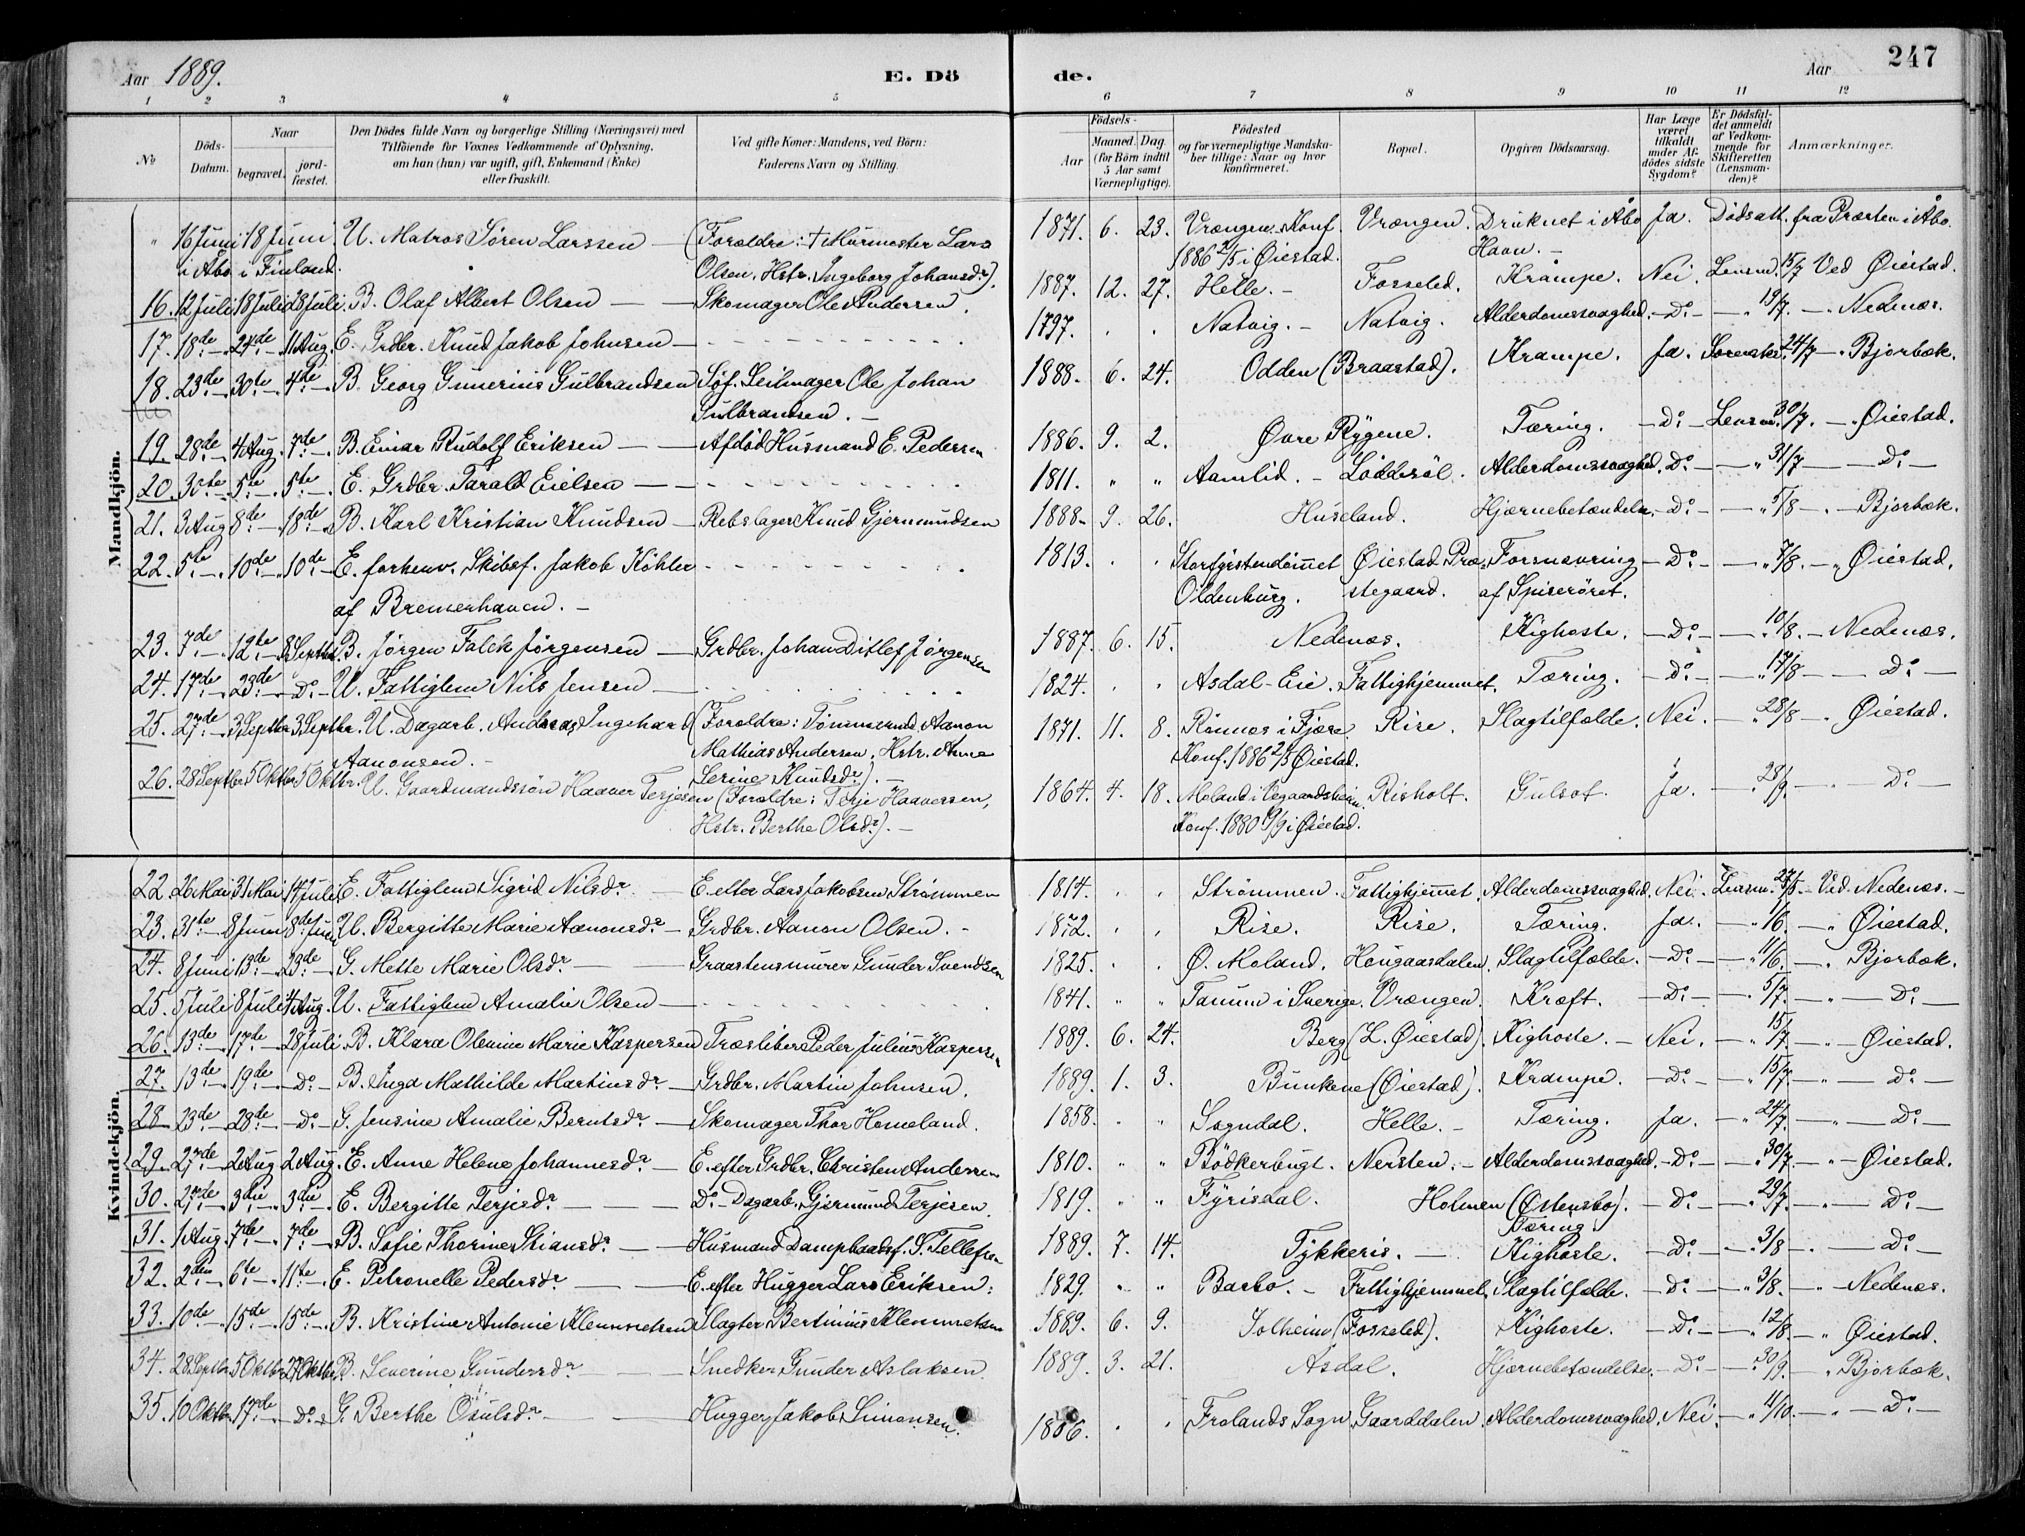 Aar 1889. E. Dö de. Aar 247
1 2 3 4 5 6 7 8 9 10 11 12
No
Döds-Datum.
Naar
begravet.
jord-fæstet.
Den Dödes fulde Navn og borgerlige Stilling (Næringsvei) med
Tilföiende for Voxnes Vedkommende af Oplysning,
om han (hun) var ugift, gift, Enkemand (Enke)
eller fraskilt.
Ved gifte Koner: Mandens, ved Börn:
Faderens Navn og Stilling.
Födsels-
Aar
Maaned. Dag
(for Börn indtil
5 Aar samt
Værnepligtige).
Födested
og for værnepligtige Mandskaber tillige: Naar og hvor
konfirmeret.
Bopæl.
Opgiven Dödsaarsag.
Har Læge
været
tilkaldt
under Afdödes sidste
Sygdom?
Er Dödsfaldet anmeldt
af Vedkommende for
Skifteretten
(Lensmanden)?
Anmærkninger.
Mandkjön.
" 16 Juni 18 Juni U. Matros Sören Larssen — (Forældre: † Murmester Lars 1871. 6. 23. Vrængen. Konf. Vrængen. Druknet i Åbo Ja. Dödsatt. fra Præsten i Åbo.
i Åbo i Finland. Olsen, Hstr. Ingeborg Johansdr). 1886 i Øiestad. Havn. —
16. 12 Juli 18 Juli 28 Juli. B. Olaf Albert Olsen — Skomager Ole Andersen. 1887. 12. 27. Helle. — Fosseled. Krampe. Nei. Lensm. 15/7 Ved Øiestad.
17. 18de 24de 11 Aug. E. Grdbr. Knud Jakob Johnsen — 1797. Natvig. — Natvig. Alderdomssvaghed. Do — " 19/7 — Nedenæs.
18. 23de 30te 4de B. Georg Gunerius Gulbrandsen Söf. Seilmager Ole Johan 1888. 6. 24. Odden (Braastad). Krampe. Ja. 24/7 — Bjorbæk.
Gulbrandsen. —
19. 28de 4 Aug. 7de B. Einar Rudolf Eriksen — Afdöd Husmand E. Pedersen 1886. 9. 2. Øvre Rygene. Tæring. Do Lensm. 30/7 — Øiestad.
20. 30te 5te 5te E. Grdbr. Tarald Eielsen — 1811. " " Aamlid. — Löddesöl. Alderdomssvaghed. Do — " 31/7 — Do —
21. 3 Aug 8de 18de B. Karl Kristian Knudsen — Rebslager Knud Gjermundsen 1888. 9. 26. Huseland. Hjærnebetændelse. Do — " 5/8 — Bjorbæk.
22. 5te 10de 10de E. forhenv. Skibsf. Jakob Köhler 1813. Storfyrstendömmet Øiestad Præ- Forsnævring Do — " 7/8 — Øiestad.
af Bremerhaven. — Oldenburg. stegaard. af Spiserøret.
23. 7de 12te 8 Septbr. B. Jørgen Falck Jørgensen — Grdbr. Johan Ditlef Jörgensen 1887. 6. 15. Nedenæs. Kighoste. Do — 10/8 — Nedenæs.
24. 17de 23de Do U. Fattiglem Nils Jensen — 1824. Asdal-Eie. Fattighjemmet. Tæring. Do — 17/8 — Do —
25. 27de 3 Septbr 3 Septbr. U. Dagarb. Andreas Ingehard (Forældre: Tömmermd. Aanon 1871. 11. 8. Rönnes i Fjære Rise. Slagtilfælde. Nei. — 28/8 — Øiestad.
Aanonsen. — Mathias Andersen, Hstr. Anne Konf. 1886 Øiestad.
Serine Knudsdr). —
26. 28 Septbr 5 Oktbr 5 Oktbr. U. Gaardmandssön Haaver Terjesen (Forældre: Terje Haaversen, 1864. 4. 18. Moland i Vegaardsheien. Risholt. Gulsot. Ja. — 28/9 — Do —
Hstr. Berthe Olsdr). — Konf. 1880 i Øiestad.
Kvindekjön.
22. 26 Mai 31 Mai 14 Juli E. Fattiglem Sigrid Nilsdr — E. efter Lars Jakobsen Strömmen 1814. Strömmen. Fattighjemmet. Alderdomssvaghed. Nei. Lensm. Ved Nedenæs. —
23. 31te 8 Juni 8de Juni U. Bergitte Marie Aanonsdr — Grdbr. Aanon Olsen. — 1872. Rise. Rise. Tæring. Ja. — /6 — Øiestad.
24. 8 Juni 13de 23de G. Mette Marie Olsdr — Graastensmurer Gunder Svendsen 1825. Ø. Moland. Hougaasdalen. Slagtilfælde. Do — 11/6 — Bjorbæk.
25. 5 Juli 8 Juli 4 Aug. U. Fattiglem Amalie Olsen — 1841. " " Tanum i Sverige. Vrængen. Kræft. Do — 5/7 — Do —
26. 13de 17de 28 Juli. B. Klara Olemine Marie Kaspersen Træsliber Peder Julius Kaspersen 1889. 6. 24. Berg (L. Øiestad). Kighoste. — Nei. — 15/7 — Øiestad.
27. 13de 19de Do B. Inga Mathilde Martinsdr — Grdbr. Martin Johnsen. 1889. 1. 3. Bunkene (Øiestad). Krampe. Do — 15/7 — Do —
28 23de 28de Do G. Jensine Amalie Berntsdr — Skomager Thor Homeland. 1858. Sogndal. Helle. — Tæring. Ja. — 24/7 — Do —
29. 27de 2 Aug 2 Aug. E. Anne Helene Johannesdr — E. efter Grdbr. Christen Andersen 1810. Bödkerbugt. Nersten. — Alderdomssvaghed. Do — 30/7 — Øiestad.
30. 27de 3die 3die E. Bergitte Terjesdr — Do Dagarb. Gjermund Terjesen. 1819. Fyrisdal. Holmen (Østensbö). Do — 29/7 — Do —
31. 1 Aug. 7de 7de B. Sofie Thorine Stiansdr — Husmand Dampbaadsf. S. Tellefsen 1889. 7. 14. Tykkeris. — Tæring Kighoste. Do — 3/8 — Do —
32. 2den 6te 11te E. Petronelle Pedersdr — E. efter Hugger Lars Eriksen. 1829. Barbo. — Fattighjemmet. Slagtilfælde. Do — 3/8 — Nedenæs.
33. 10de 15de 15de B. Kristine Antonie Klemmetsen Slagter Bertinius Klemmetsen 1889. 6. 9. Solheim (Fosseled). Kighoste. Do — 12/8 — Øiestad.
34. 28 Septbr 5 Oktbr 27 Oktbr B. Severine Gundersdr — Snedker Gunder Aslaksen. 1889. 3. 21. Asdal. Hjærnebetændelse. Do — 30/9 " Bjorbæk.
35. 10 Oktbr 17de Do G. Berthe Osulsdr — Hugger Jakob Simonsen. Frolands Sogn. Gaarddalen. Alderdomssvaghed. Nei. — 11/10 — Do —